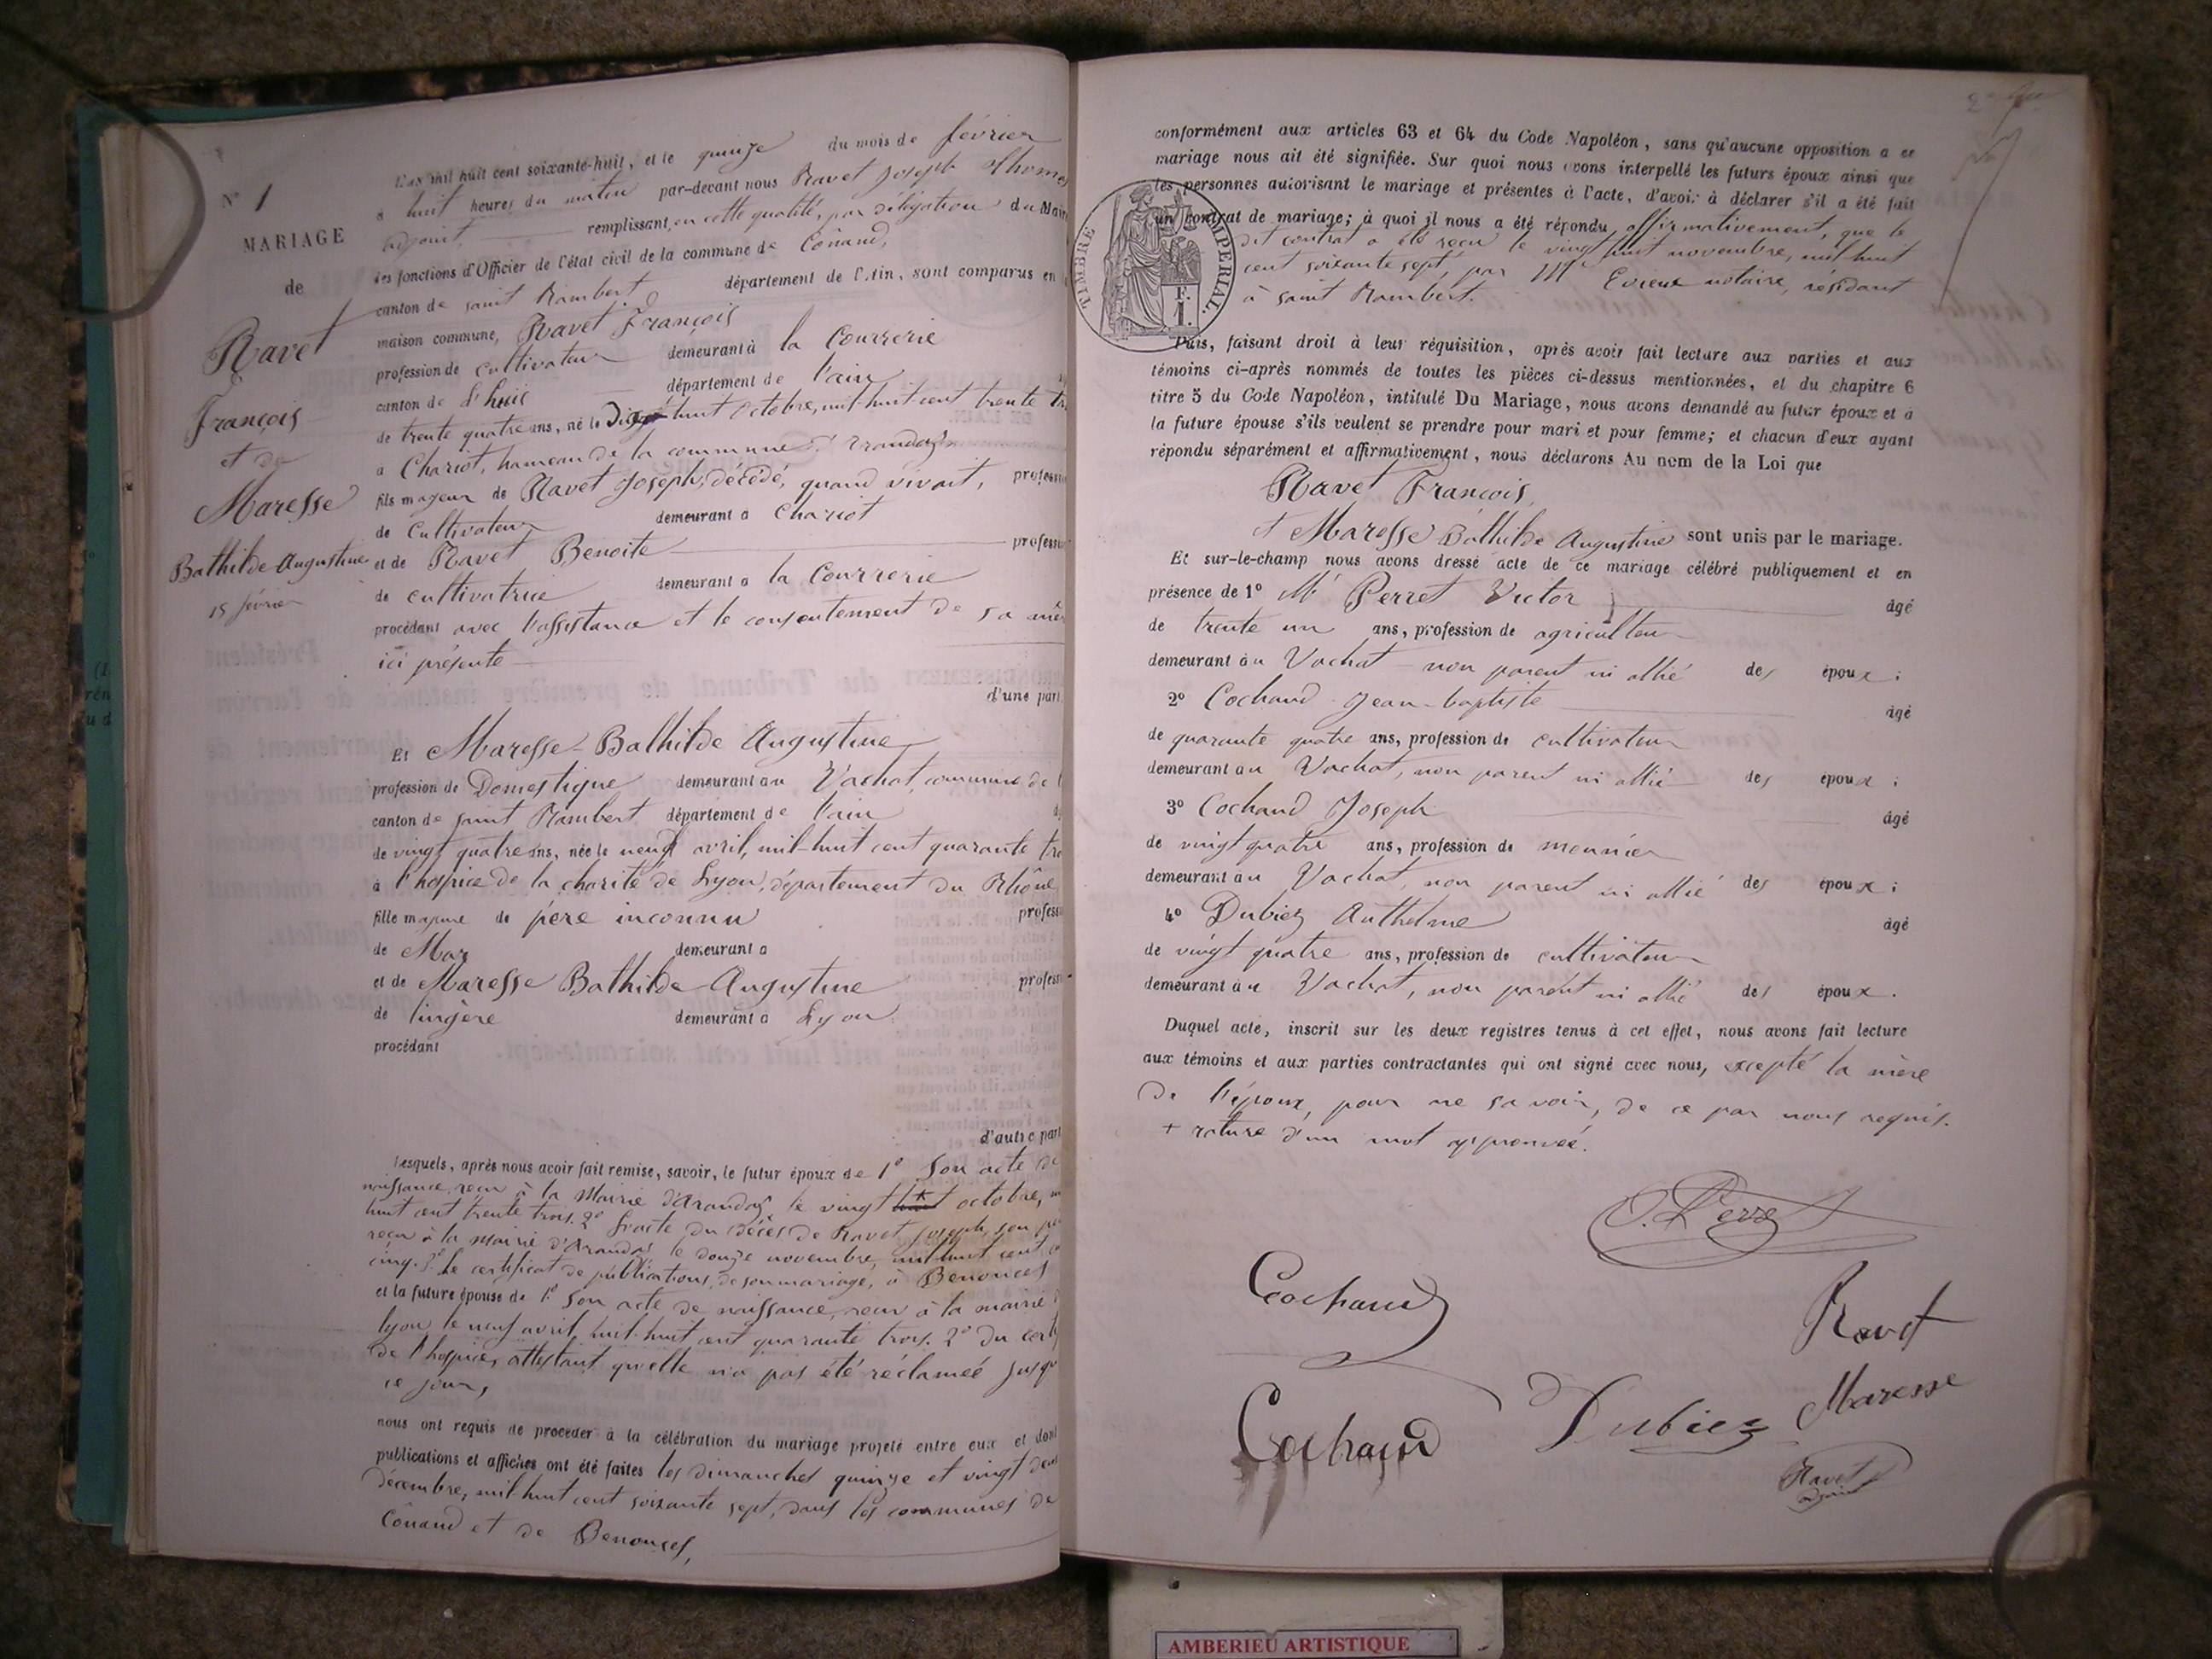 N° 1
MARIAGE
de
Ravet
François
et de
Maresse
Bathilde Augustine
15 février
L'an mil huit cent soixante-huit, et le quinze du mois de février
à huit heures du matin par-devant nous Ravet Joseph Thomas
adjoint, remplissant, en cette qualité, par délégation du Maire
les fonctions d'Officier de l'état civil de la commune de Cônand,
canton de saint Rambert département de l'Ain, sont comparus en
maison commune, Ravet François
profession de cultivateur demeurant à la Courrerie
canton de L'huis département de l'ain
de trente quatre ans, né le Dix huit Octobre, mil-huit cent trente tr
à Chariot, hameau de la commune d'Arandas
fils majeur de Ravet Joseph, décédé, quand vivait, professi
de Cultivateur demeurant à Chariot
et de Ravet Benoite professi
de cultivatrice demeurant à la Courrerie
procédant avec l'assistance et le consentement de sa mèr
ici présente
d'une part
Et Maresse Bathilde Augustine
profession de Domestique demeurant au Vachat, commune de
canton de saint Rambert département de l'ain
de vingt quatre ans, née le neuf avril, mil-huit cent quarante tro
à l'hospice de la charité de Lyon, département du Rhône
fille majeure de père inconnu professi
de Mar demeurant à
et de Maresse Bathilde Augustine professi
de lingère demeurant à Lyon
procédant
d'autre part
Lesquels, après nous avoir fait remise, savoir, le futur époux de 1° Son acte de
naissance, reçu à la Mairie d'Arandas, le vingt octobre,
huit cent trente trois. 2° L'acte du décès de Ravet Joseph, son pè
reçu à la mairie d'Arandas, le douze novembre, mil-huit cent
cinq. 3° Le certificat de publications, de son mariage, à Benonces
et la future épouse de 1° Son acte de naissance, reçu à la mairie
Lyon le neuf avril, mil-huit cent quarante trois. 2° Du certi
de l'hospice, attestant qu'elle n'a pas été réclamée jusqu'
ce jour,
nous ont requis de procéder à la célébration du mariage projeté entre eux et dont
publications et affiches ont été faites les dimanches quinze et vingt deux
décembre, mil-huit cent soixante sept, dans les communes de
Cônand et de Benonces,
conformément aux articles 63 et 64 du Code Napoléon, sans qu'aucune opposition a ce
mariage nous ait été signifiée. Sur quoi nous avons interpellé les futurs époux ainsi que
les personnes autorisant le mariage et présentes à l'acte, d'avoir à déclarer s'il a été fait
un contrat de mariage; à quoi il nous a été répondu affirmativement, que le
dit contrat a été reçu le vingt huit novembre, mil-huit
cent soixante sept, par Me Evieux notaire, résidant
à saint Rambert.
TIMBRE IMPERIAL
F.
1.
Puis, faisant droit à leur réquisition, après avoir fait lecture aux parties et aux
témoins ci-après nommés de toutes les pièces ci-dessus mentionnées, et du chapitre 6
titre 5 du Code Napoléon, intitulé Du Mariage, nous avons demandé au futur époux et à
la future épouse s'ils veulent se prendre pour mari et pour femme; et chacun d'eux ayant
répondu séparément et affirmativement, nous déclarons Au nom de la Loi que
Ravet François,
et Maresse Bathilde Augustine sont unis par le mariage.
Et sur-le-champ nous avons dressé acte de ce mariage célébré publiquement et en
présence de 1° Mr Perret Victor âgé
de trente un ans, profession de agriculteur
demeurant au Vachat non parent ni allié des époux;
2° Cochand Jean-baptiste âgé
de quarante quatre ans, profession de cultivateur
demeurant au Vachat, non parent ni allié des époux;
3° Cochand Joseph âgé
de vingt quatre ans, profession de meunier
demeurant au Vachat, non parent ni allié des époux;
4° Dubiez Anthelme âgé
de vingt quatre ans, profession de cultivateur
demeurant au Vachat, non parent ni allié des époux.
Duquel acte, inscrit sur les deux registres tenus à cet effet, nous avons fait lecture
aux témoins et aux parties contractantes qui ont signé avec nous, excepté la mère
de l'époux, pour ne savoir, de ce par nous requis.
+ rature d'un mot approuvée.
Perret
Cochand
Ravet
Cochand
Dubiez
Maresse
Ravet
adjoint
AMBERIEU ARTISTIQUE